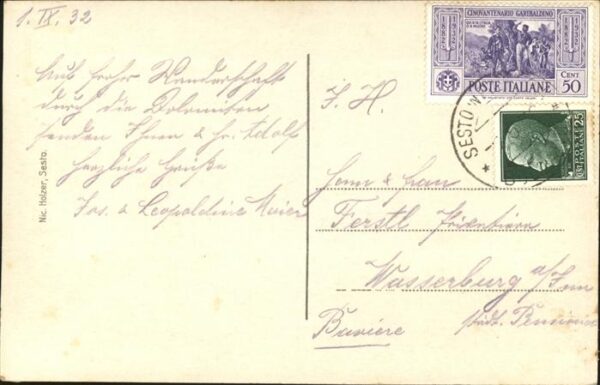 1. IX. 32
Auf froher Wanderschaft
durch die Dolomiten
senden Ihnen & Hr. Adolf
herzliche Grüße
Jos. & Leopoldine Meier
Nic. Holzer, Sesto.
CINQVANTENARIO GARIBALDINO
POSTE ITALIANE
CENT 50
POSTE ITALIANE
25
SESTO
Herrn & Frau
Ferstl
Wasserburg a/Inn
städt.
Baviere